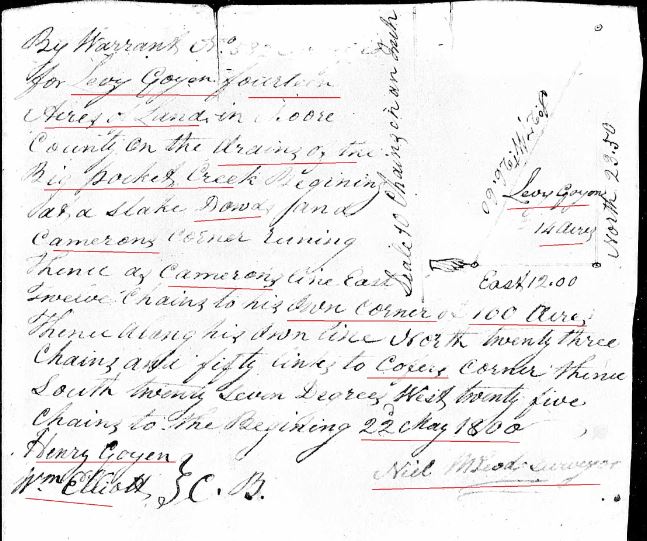 By Warrant No.
for Levy Goyen fourteen
Acres of Land in Moore
County on the drains of the
Big pocket Creek Begining
at a stake Dowds and
Camerons Corner runing
Thence as Camerons line East
Twelve Chains to his own corner of 100 Acres
Thence along his own line North twenty three
Chains and fifty links to Coxes corner thence
South twenty Seven Degrees West twenty five
Chains to the Begining 22d May 1800
Henry Goyen
Wm Elliott } C. B.
Niel McLeod Surveyor
Scale 10 Chains in an Inch
Levy Goyen
14 Acres
East 12.00
North 23.50